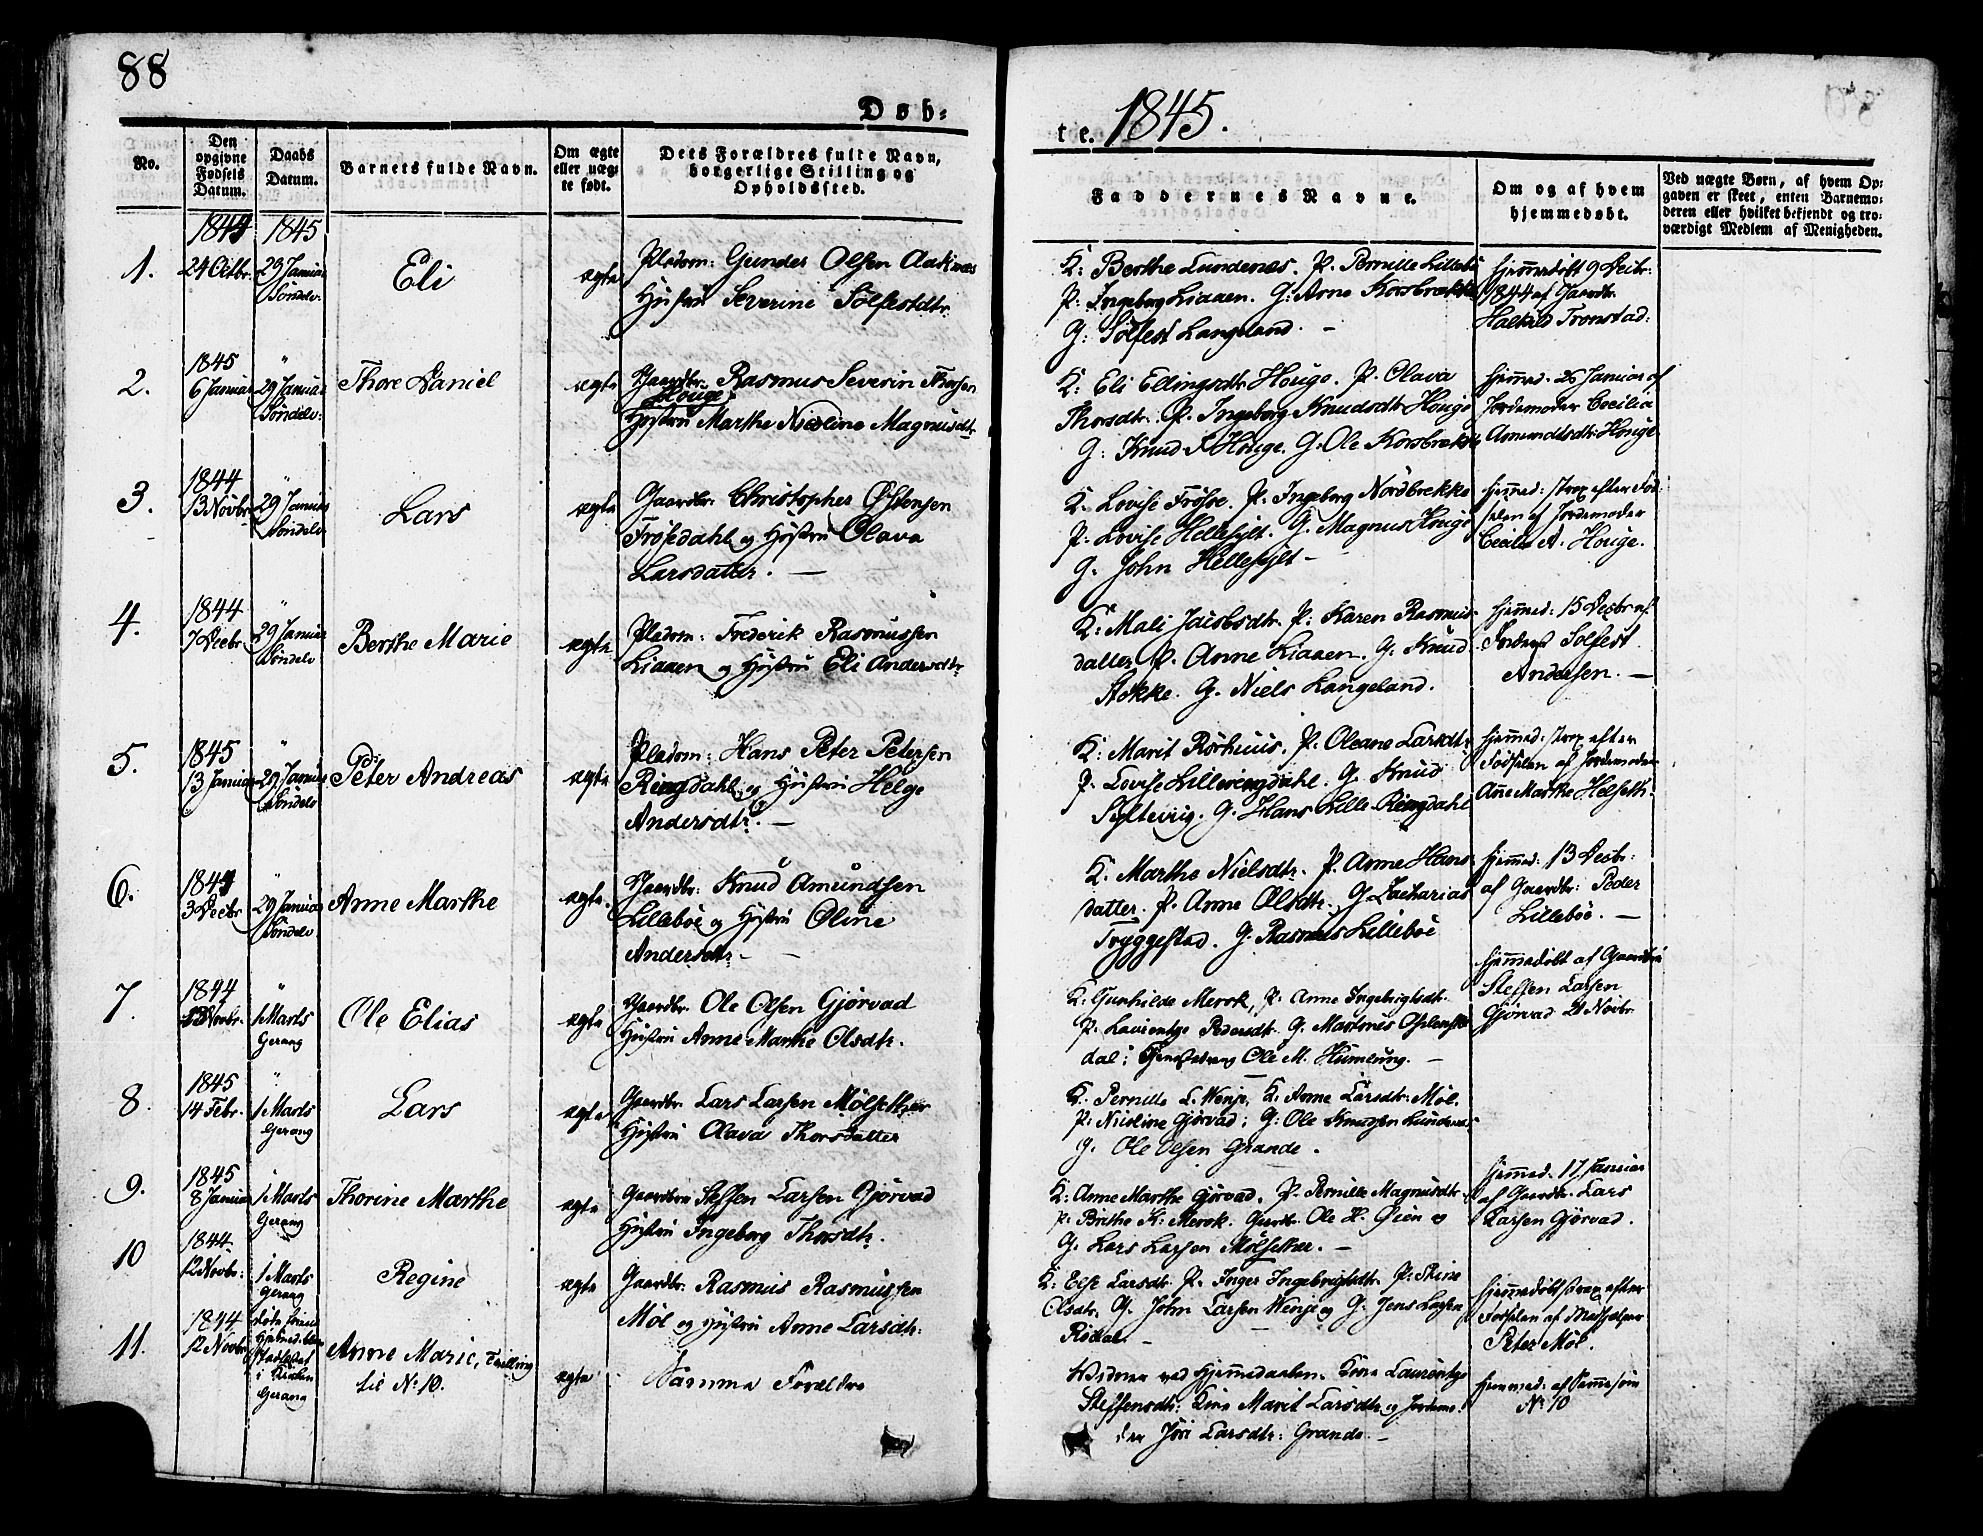 88
Døb-
te. 1845.
No.
Den opgivne Fødsels Datum.
Daabs Datum.
Barnets fulde Navn.
Om ægte eller uægte født.
Dets Forældres fulde Navn, borgerlige Stilling og Opholdssted.
Faddernes Navne.
Om og af hvem hjemmedøbt.
Ved uægte Børn, af hvem Opgaven er skeet, enten Barnemoderen eller hvilket bekjendt og troværdigt Medlem af Menigheden.
1844 1845
1. 24 Octbr. 29 Januar Søndelv. Eli ægte Pladsm: Gunder Olsen Aaknæs
Hustru Severine Sølfestdtr.
K: Berthe Lundenæs. P. Pernille Lillebø
P. Ingeborg Liaaen. G: Arne Korsbrekke
G: Sølfest Langeland. –
hjemmedøbt 9 Decbr:
1844 af Gaardbr.
Halkild Tronstad.
1845
2. 6 Januar 29 Januar Søndelv: Thore Daniel ægte Gaardbr. Rasmus Severin Thorsen
Houge,
Hustru Marthe Nicoline Magnusdtr
K: Eli Ellingsdtr Houge. P. Olava
Thorsdtr. P. Ingeborg Knudsdtr Houge
G: Knud K Houge. G: Ole Korsbrekke
hjemmed. 26 Januar af
Jordemoder Cecilia
Amundsdtr Houge
1844
3. 13 Novbr 29 Januar Søndelv Lars ægte Gaardbr. Christopher Østensen
Frøysdahl og Hustru Olava
Larsdatter. –
K. Lovise Frøise. P. Ingeborg Nordbrekke
P. Lovise Hellesylt. G. Magnus Houge
G. John Hellesylt –
hjemmed: strax efter Fød-
selen af Jordemoder
Cecilie A. Houge.
1844
4. 7 Decbr 29 Januar Søndelv Berthe Marie ægte Pladsm: Frederik Rasmussen
Liaaen og Hustru Eli Andersdtr
K: Mali Jacobsdtr. P. Karen Rasmus
datter P. Anne Liaaen. G. Knud
Stokke. G. Niels Langeland.
hjemmed: 15 Decbr af
Sølfest
Andersen. –
1845
5. 13 Januar 29 Januar Søndelv Peter Andreas ægte Pladsm: Hans Peter Petersen
Ringdahl og Hustru Helge
Andersdtr. –
K: Marit Rørhuus. P. Oleane Larsdtr
P. Lovise Lilleringdahl. G. Knud
Sylteviig. G. Hans Lille Ringdahl
hjemmed: strax efter
Fødselen af Jordemoder
Ane Marthe Helseth.
1844
6. 3 Decbr 29 Januar Søndelv Anne Marthe ægte. Gaardbr: Knud Amundsen
Lillebøe og Hustru Oline
Andersdtr – –
K. Marthe Nielsdtr. P. Anne Hans
datter. P. Anne Olsdtr. G. Zacharias
Tryggestad. G. Rasmus Lillebøe
hjemmed: 13 Decbr.
af Gaardbr: Peder
Lillebøe. –
1844
7. Novbr. 1 Marts Gerang Ole Elias ægte Gaardbr. Ole Olsen Gjørvad
Hustru Anne Marthe Olsdtr.
K. Gunhilde Merok, P. Anne Ingebrigtsdtr.
P. Laurentze Pedersdtr. G. Martinus
dal; Ole M. Humlung. –
hjemmedøbt af Gaardbr
Steffen Larsen
Gjørvad 21 Novbr
1845
8. 14 Febr. 1 Marts Gerang Lars ægte Gaardbr. Lars Larsen Mølsetter
Hustru Olava Thorsdatter
K. Pernille L. Wenje, K. Anne Larsdtr Møl.
P. Nicoline Gjørvad; G: Ole Knudsen Lundenæs
G. Ole Olsen Grande.
1845
9. 8 Januar 1 Marts Gerang Thorine Marthe ægte Gaardbr. Steffen Larsen Gjørvad
Hustru Ingeborg Thorsdtr.
K: Anne Marthe Gjørvad. P. Pernille Magnusdtr.
P. Brithe K. Merok. Gardbr. Ole H. Øien og
G. Lars Larsen Mølsether. –
hjemmed. 17 Januar
af Gaardbr. Lars
Larsen Gjørvad.
1844
10 12 Novbr. 1 Marts Gerang Regine ægte Gaardbr. Rasmus Rasmussen
Møl og Hustru Anne Larsdtr.
K: Else Larsdtr. P. Inger Ingebrigtsdtr. P. Stine
Olsdtr. G. John Larsen Wenje og G. Jens Larsen
Rødal. –
hjemmedøbt strax efter
Fødselen af Medhjelper
Peter Møl.
1844
11. 12 Novbr. i Kirken Gerang Anne Marie, Tvilling
til No 10. ægte Samme Forældre
Vidner ved Hjemmedaaben. Kone Laurentze
Steffensdtr: Kone Marit Larsdtr og Jordemo-
der Jøri Larsdtr: Grande. –
hjemmed. af samme som
No 10